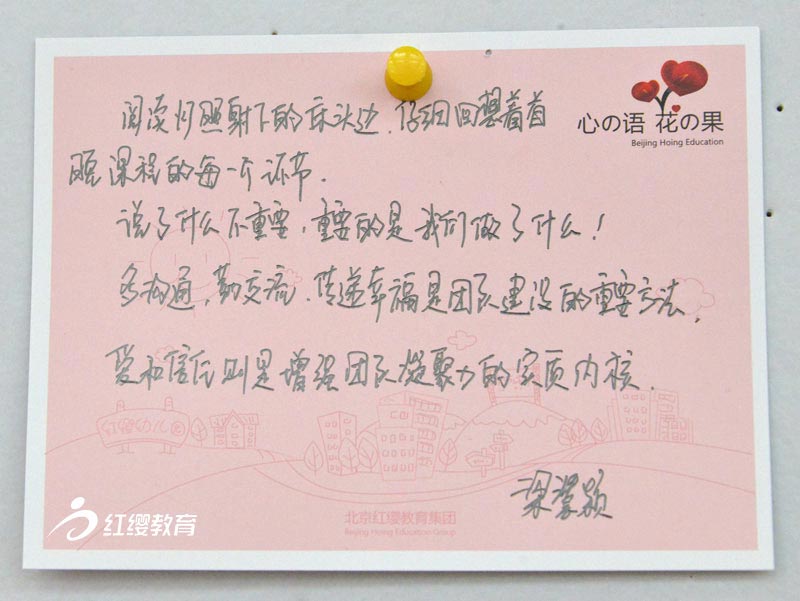 心の语 花の果
Beijing Hoing Education
阅读灯照射下的床头边,仔细回想着首
晚课程的每一个环节.
说了什么不重要,重要的是我们做了什么!
多沟通,勤交流,传递幸福是团队建设的重要方法,
爱和信任则是增强团队凝聚力的实质内核.
红缨幼儿园
梁
颖
红缨教育
北京红缨教育集团
Beijing Hoing Education Group